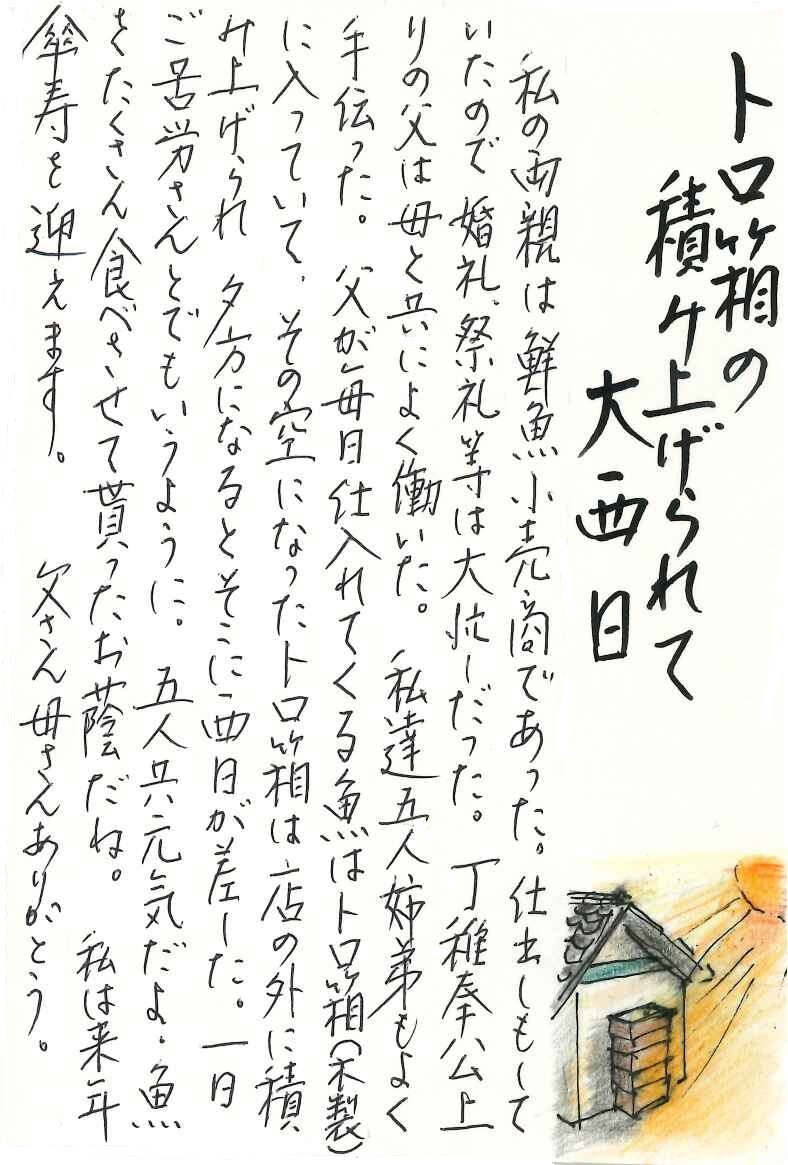 トロ箱の
積み上げられて
大西日
私の両親は鮮魚小売商であった。仕出しもして
いたので婚礼、祭礼等は大忙しだった。丁稚奉公上
りの父は母と共によく働いた。私達五人姉弟もよく
手伝った。父が毎日仕入れてくる魚はトロ箱(木製)
に入っていて、その空になったトロ箱は店の外に積
み上げられ夕方になるとそこに西日が差した。一日
ご苦労さんとでもいうように。五人共元気だよ。魚
をたくさん食べさせて貰ったお蔭だね。私は来年
傘寿を迎えます。父さん母さんありがとう。